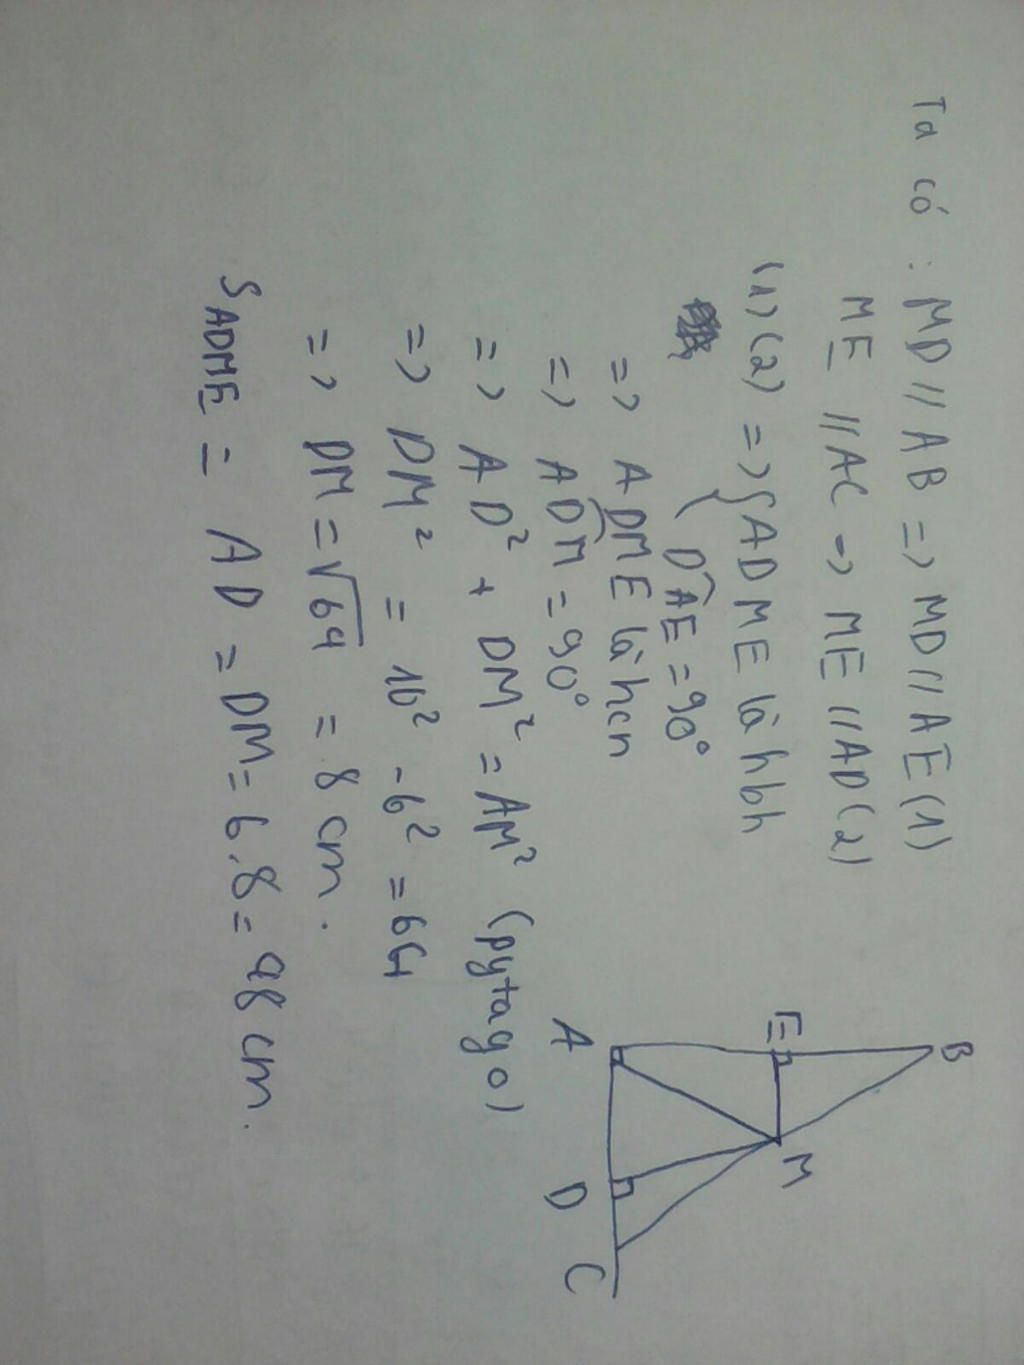 Ta có : MD // AB => MD // AE (1)
ME // AC => ME // AD (2)
(1) (2) => { ADME là hbh
DAE = 90°
=> ADME là hcn
=> ADM = 90°
=> AD² + DM² = AM² (pytago)
=> DM² = 10² - 6² = 64
=> DM = √64 = 8 cm.
S ADME = AD = DM = 6.8 = 48 cm.
B
E
M
A
D
C